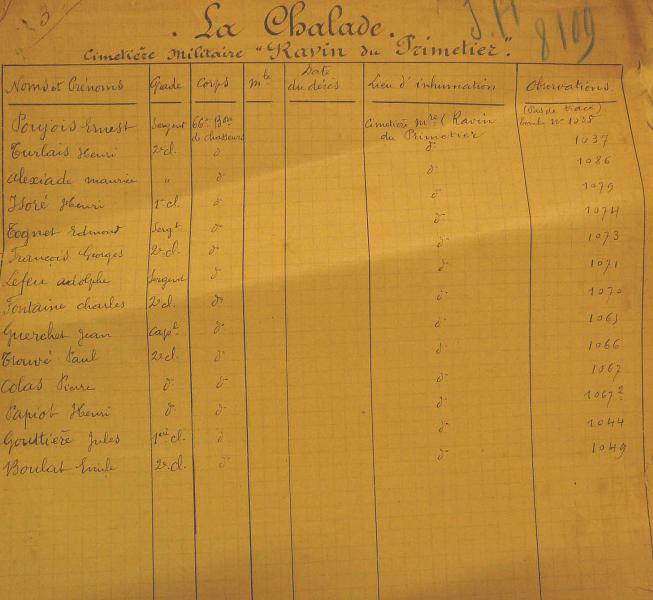 3
J.H
8109
. La Chalade.
Cimetière Militaire "Ravin du Primetier".
Noms et Prénoms Grade Corps Mle Date du décès Lieu d'inhumation Observations
(Pas de trace)
Poujois Ernest Sergent 66e Bon de chasseurs Cimetière Mre (Ravin du Primetier Tombe No 1038
Turlais Henri 2e cl. d° d° 1037
Alexiade Maurice " d° d° 1086
Isoré Henri 1e cl. d° d° 1079
Tognet Edmont Sergt d° d° 1074
François Georges 2e cl. d° d° 1073
Lefeu Adolphe Sergent d° d° 1071
Fontaine Charles 2e cl. d° d° 1070
Guerchet Jean Capl d° d° 1065
Trouvé Paul 2e cl. d° d° 1066
Colas Pierre d° d° d° 1067
Papiot Henri d° d° d° 1067 2
Gouttière Jules 1ere cl. d° d° 1044
Boulat Emile 2e cl. d° d° 1049